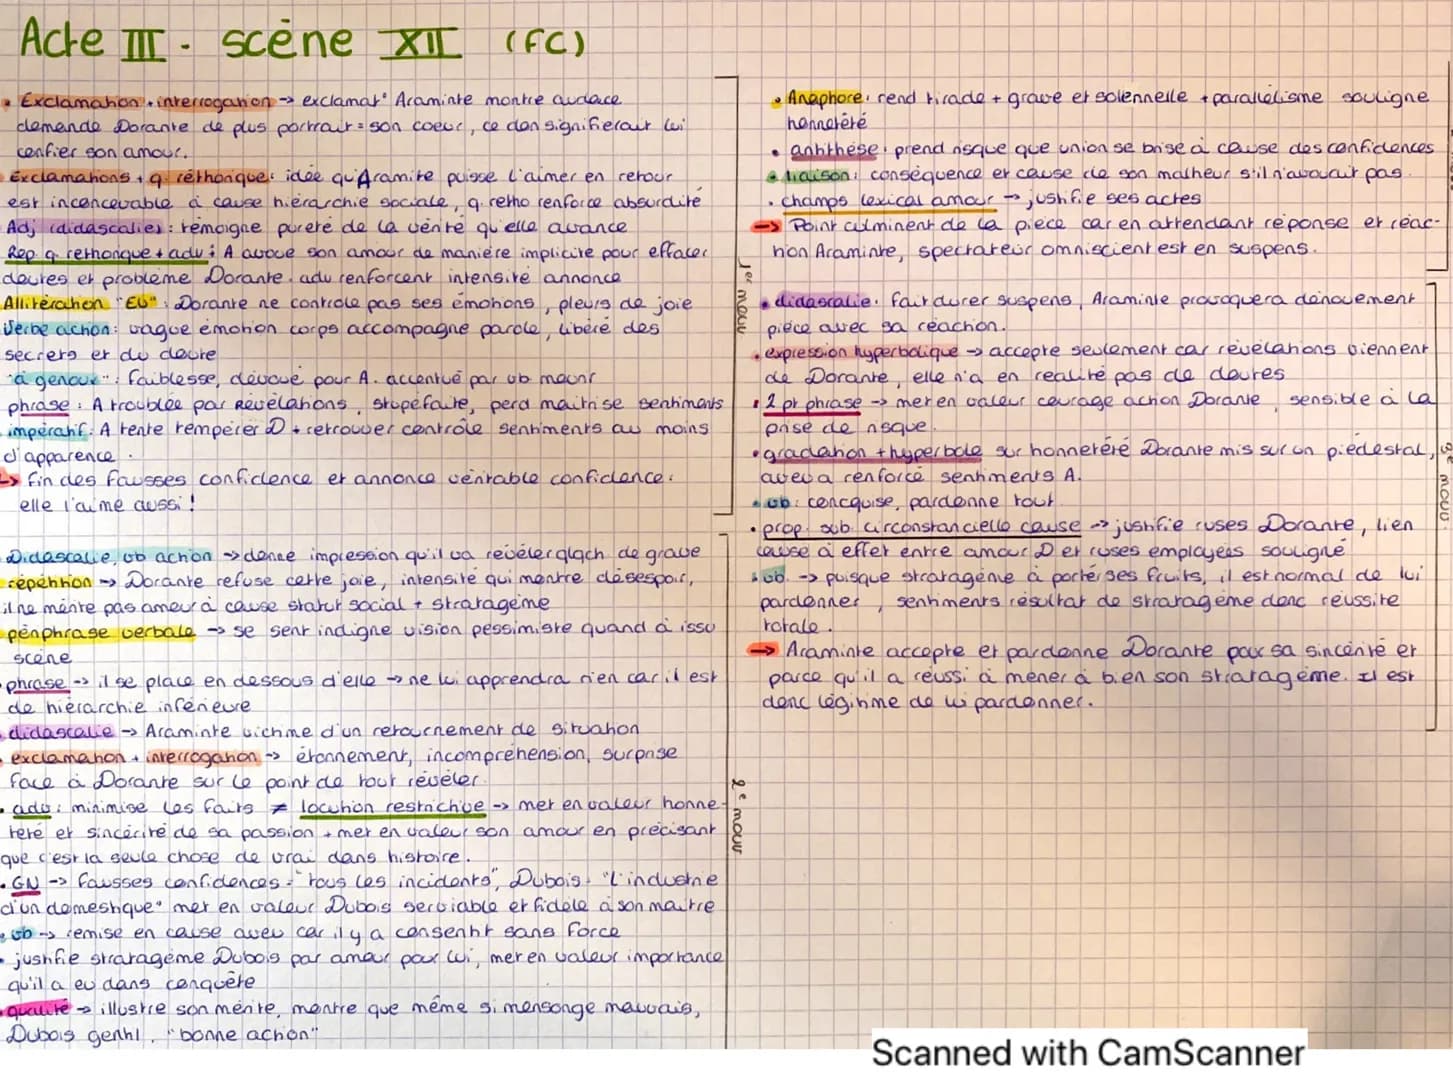 Acte III. scène XII (FC)
• Exclamation + interrogation → exclamat° Araminte montre audace
demande Dorante de plus portrait = son coeur, ce don signifierait lui
confier son amour.
Exclamations + q. réthorique : idée qu'Aramite puisse l'aimer en retour
est inconcevable à cause hiérarchie sociale, q. rétho renforce absurdité
Adj (didascalies) : témoigne pureté de la vérité qu'elle avance
Rep. q. rethorique + adv : A avoue son amour de manière implicite pour effacer
doutes et problème Dorante. adv renforcent intensité annonce
Allitération "EU" : Dorante ne contrôle pas ses émotions, pleurs de joie
Verbe action : vague émotion corps accompagne parole, libéré des
secrets et du doute
"à genoux" : faiblesse, dévoué pour A. accentué par vb mourir
phrase : A troublée par Révélations, stupéfaite, perd maitrise sentiments
impératif : A tente tempérer D + retrouver contrôle sentiments au moins
d'apparence.
↳ fin des fausses confidence et annonce véritable confidence :
elle l'aime aussi !
1er mouv
Didascalie, vb action → donne impression qu'il va révéler qlqch de grave
répétition → Dorante refuse cette joie, intensité qui montre désespoir,
il ne mérite pas amour à cause statut social + stratagème
périphrase verbale → se sent indigne vision pessimiste quand à issu
scène
phrase → il se place en dessous d'elle → ne lui apprendra rien car il est
de hiérarchie inférieure
didascalie → Araminte victime d'un retournement de situation
exclamation + interrogation → étonnement, incompréhension, surprise
face à Dorante sur le point de tout révéler.
• adv : minimise les faits ≠ locution restrictive → met en valeur honne-
teté et sincérité de sa passion + met en valeur son amour en précisant
que c'est la seule chose de vrai dans histoire.
• GN → fausses confidences = "tous les incidents", Dubois = "l'industrie
d'un domestique" met en valeur Dubois serviable et fidèle à son maitre
• vb → remise en cause aveu car il y a consentit sans force
• justifie stratagème Dubois par amour pour lui, met en valeur importance
qu'il a eu dans conquète
• qualité → illustre son mérite, montre que même si mensonge mauvais,
Dubois gentil. "bonne action"
2e mouv
• Anaphore : rend tirade + grave et solennelle + parallélisme souligne
honneteté
• antithèse : prend risque que union se brise à cause des confidences
• liaison : conséquence et cause de son malheur s'il n'avouait pas.
• champs lexical amour → justifie ses actes
→ Point culminent de la pièce car en attendant réponse et réac-
tion Araminte, spectateur omniscient est en suspens.
• didascalie : fait durer suspens, Araminte provoquera dénouement
pièce avec sa réaction.
• expression hyperbolique → accepte seulement car révélations viennent
de Dorante, elle n'a en réalité pas de doutes
• 2 pt phrase → met en valeur courage action Dorante, sensible à la
prise de risque.
• gradation + hyperbole sur honneteté Dorante mis sur un piédestal,
aveu a renforcé sentiments A.
• vb : concquise, pardonne tout
• prop. sub. circonstancielle cause → justifie ruses Dorante, lien
cause à effet entre amour D et ruses employées souligné
• vb. → puisque stratagème à porté ses fruits, il est normal de lui
pardonner, sentiments résultat de stratagème donc réussite
totale.
→ Araminte accepte et pardonne Dorante pour sa sincérité et
parce qu'il a réussi à mener à bien son stratagème. Il est
donc légitime de lui pardonner.
3e mouv
Scanned with CamScanner